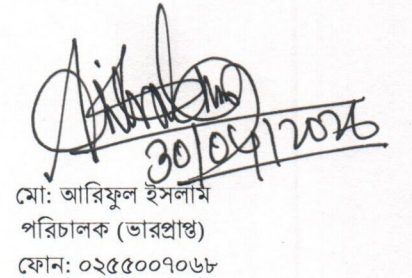 30/04/2026
মো: আরিফুল ইসলাম
পরিচালক (ভারপ্রাপ্ত)
ফোন: ০২৫৫০০৭০৬৮